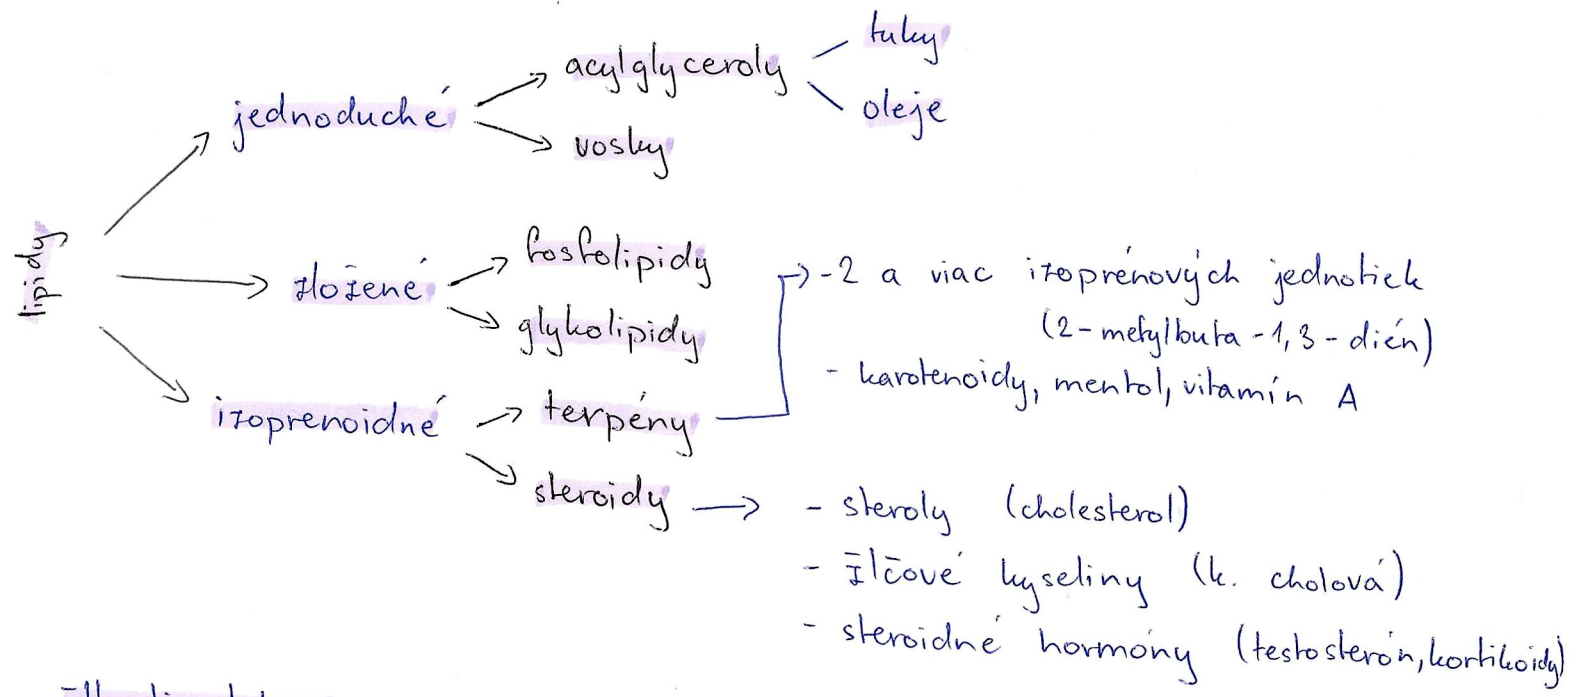 lipidy
jednoduché
acylglyceroly
tuky
oleje
vosky
zložené
fosfolipidy
glykolipidy
izoprenoidné
terpény
-2 a viac izoprénových jednotiek
(2-metylbuta-1,3-dién)
- karotenoidy, mentol, vitamín A
steroidy
- steroly (cholesterol)
- žlčové kyseliny (k. cholová)
- steroidné hormóny (testosterón, kortikoidy)